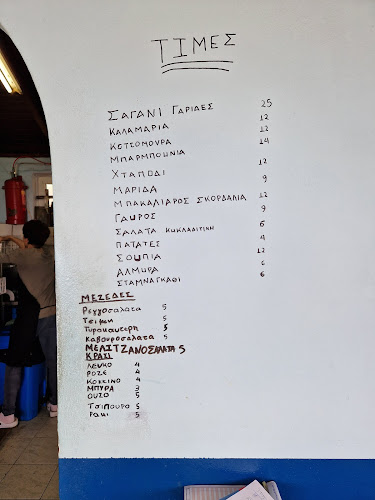 ΤΙΜΕΣ
ΣΑΓΑΝΙ ΓΑΡΙΔΕΣ 25
ΚΑΛΑΜΑΡΙΑ 12
ΚΟΤΣΟΜΟΥΡΑ 12
ΜΠΑΡΜΠΟΥΝΙΑ 14
ΧΤΑΠΟΔΙ 12
ΜΑΡΙΔΑ 9
ΜΠΑΚΑΛΙΑΡΟΣ ΣΚΟΡΔΑΛΙΑ 12
ΓΑΥΡΟΣ 9
ΣΑΛΑΤΑ ΚΥΚΛΑΔΙΤΙΚΗ 6
ΠΑΤΑΤΕΣ 4
ΣΟΥΠΙΑ 12
ΑΛΜΥΡΑ 6
ΣΤΑΜΝΑΓΚΑΘΙ 6
ΜΕΖΕΔΕΣ
Ρεγγοσαλατα 5
Τσιμη 5
Τυροκαυτερη 5
Καβουροσαλατα 5
ΜΕΛΙΤΖΑΝΟΣΑΛΑΤΑ 5
ΚΡΑΣΙ
ΛΕΥΚΟ 4
ΡΟΖΕ 4
ΚΟΚΚΙΝΟ 4
ΜΠΥΡΑ 3
ΟΥΖΟ 5
Τσιπουρο 5
Ρακι 5